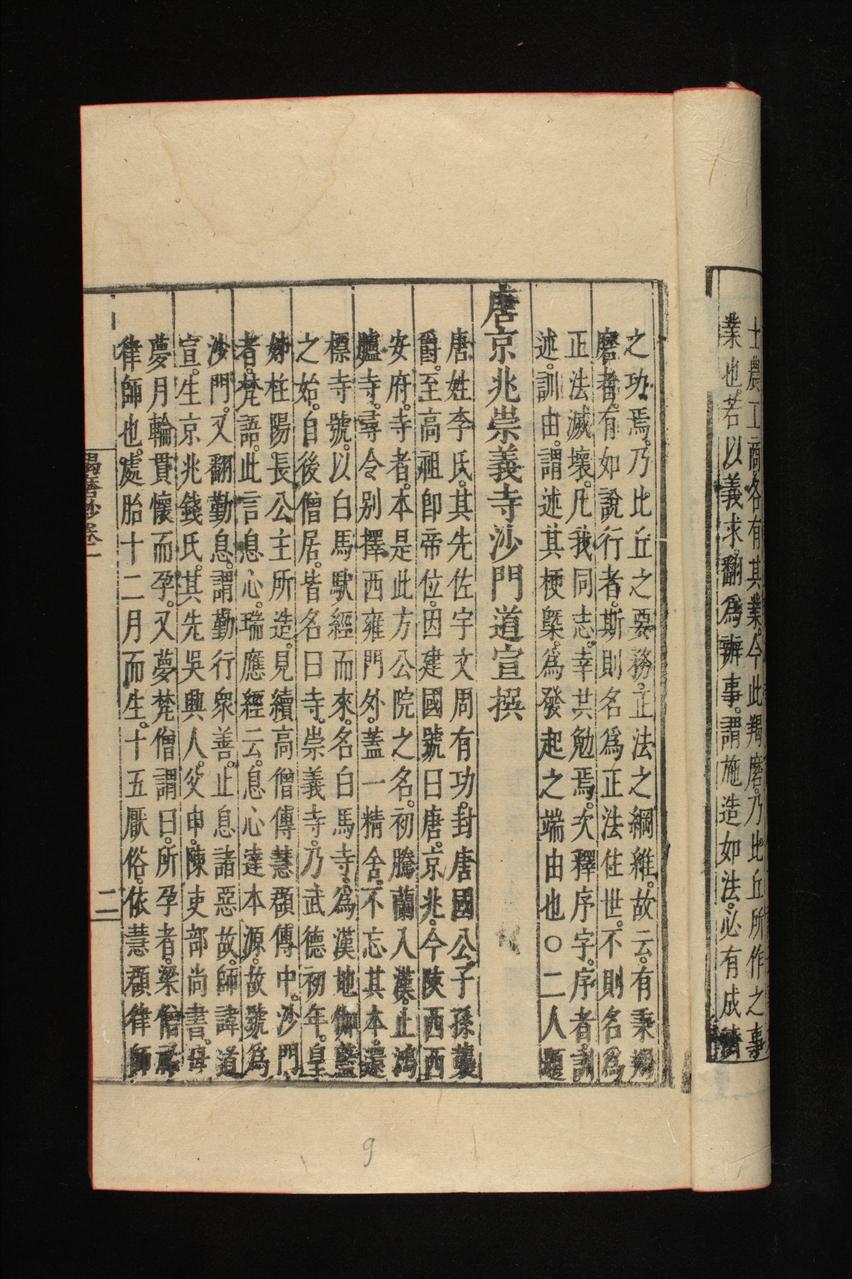 士農工商各有其業今此羯磨乃比丘所作之事
業也若以義求翻爲辦事謂施造如法必有成濟
之功焉乃比丘之要務正法之綱維故云有秉羯
磨者有如說行者斯則名爲正法住世不則名爲
正法滅壞凡我同志幸共勉焉次釋序字序者訓
述訓由謂述其梗槩爲發起之端由也○二人題
唐京兆崇義寺沙門道宣撰
唐姓李氏其先佐宇文周有功封唐國公子孫襲
爵至高祖卽帝位因建國號曰唐京兆今陝西西
安府寺者本是此方公院之名初騰蘭入漢止鴻
臚寺尋令别擇西雍門外蓋一精舍不忘其本還
標寺號以白馬䭾經而來名白馬寺爲漢地伽藍
之始自後僧居皆名曰寺崇義寺乃武德初年皇
姊桂陽長公主所造見續高僧傳慧頵傳中沙門
者梵語此言息心瑞應經云息心達本源故號爲
沙門又翻勤息謂勤行衆善止息諸惡故師諱道
宣生京兆錢氏其先吳興人父申陳吏部尚書母
夢月輪貫懷而孕又夢梵僧謂曰所孕者梁僧祐
律師也處胎十二月而生十五厭俗依慧頵律師
羯磨鈔卷一
二
9